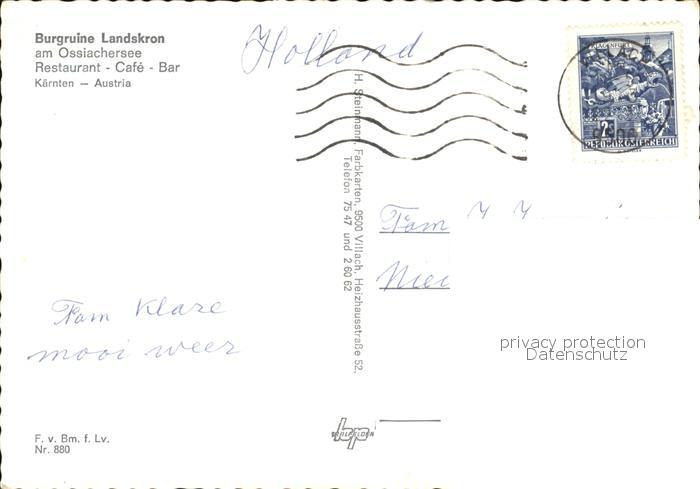 Burgruine Landskron
am Ossiachersee
Restaurant - Café - Bar
Kärnten — Austria
Holland
KLAGENFURT
VILLACH
2S
REPUBLIK ÖSTERREICH
H. Steinmann, Farbkarten, 9500 Villach, Heizhausstraße 52,
Telefon 75 47 und 2 60 62
Fam
Fam Klare
mooi weer
privacy protection
Datenschutz
F. v. Bm. f. Lv.
Nr. 880